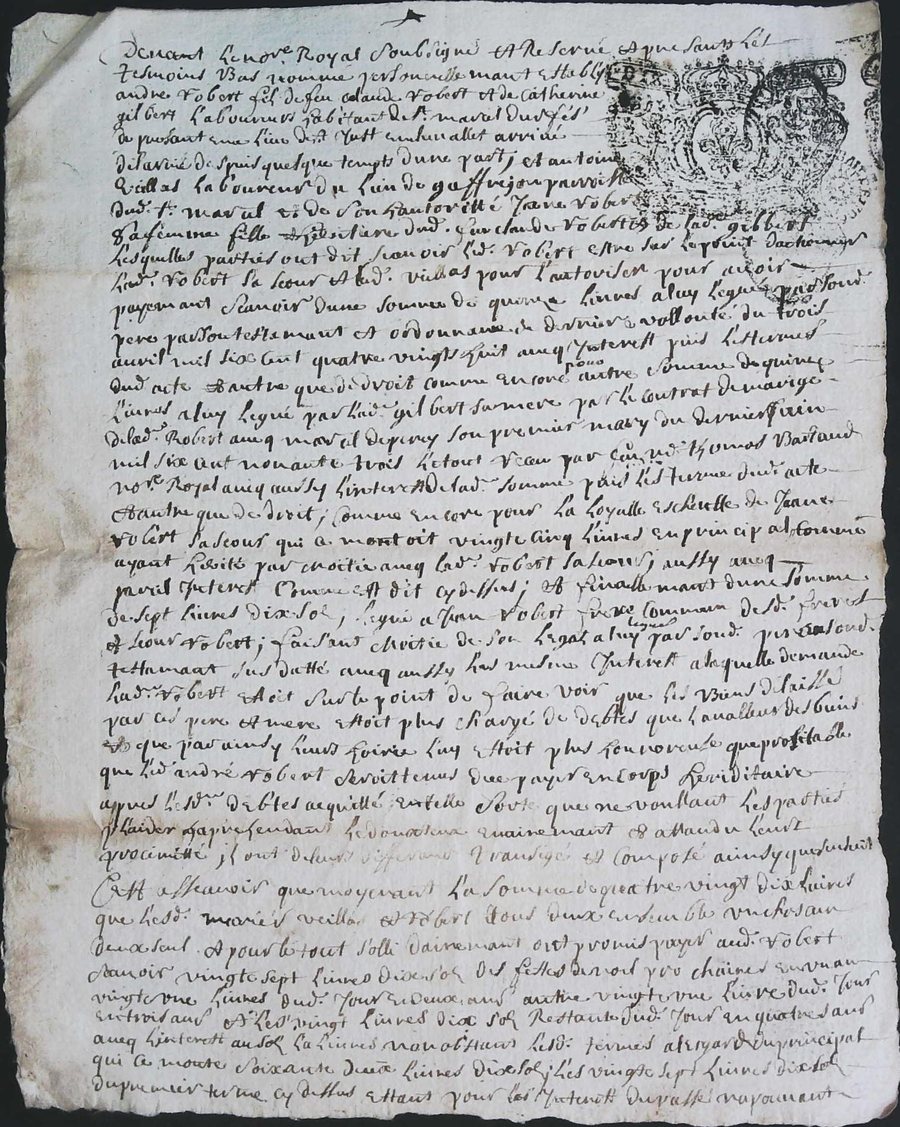 Devant le no.re Royal soubsigné et Reservé et presantz les
tesmoins bas nommé personnellemant establys
andre Robert filz de feu claude Robert et de Catherine
gilbert laboureurs habitant de St. marcel durfés
de presant en a lieu de St. Just en chevallet arrivé
despuis quesque tempts dune part, et antoine
veillas laboureur du lieu de parroisse
dud. St. marcel et de son hautorité Jane Robert
sa femme fille et heritiere dud. feu claude Robert et de lad. gilbert
lesquelles parties ont dit scavoir led. Robert estre sur le point dactionner
lad. Robert sa seur et led. veillas pour lautoriser pour avoir
payemant scavoir dune somme de quinze livres a luy legué par sond.
pere par son testamant et ordonnance de derniere vollonté du trois
avril mil six cent quatre vingts huit avec Interest puis les termes
dud. acte et autre que de droit comme encore pour autre somme de quinze
livres a luy legué par lad. gilbert sa mere par le contrat de mariage
de lad. Robert avec marcel depirey son premier mary du dernier Juin
mil six cent nonante trois le tout receu par feu me. thomas Bartaud
no.re Royal avec aussy linterest de lad. somme puis les terme dud. acte
et autre que de droit; comme encore pour la loyalle escheutte de Jeane
robert sa seur qui ce montoit vingte cinq livres en principal comme
ayant herité par moitié avec lad. robert sa seur; aussy avec
pareil Interest comme est dit cy dessus; et finallemant dune somme
de sept livres dix sol, legué a Jean Robert frere commun desd. freres
et seur robert; faisant moitié de son legat a luy legué par sond. pere en sond.
testamant susdatté avec aussy les mesme Interest a laquelle demande
lad. robert estoit sur le point de faire voir que les biens delaissé
par ces pere et mere estoit plus chargé de debtes que la valleur des biens
et que par ainsy leurs hoirie luy estoit plus honnoreuse que profitable
que led. andré robert seroit tenus de ce payer en corps hereditaire
appres lesd. debtes acquitté, en telle sorte que ne voullant les parties
plaider et aprehendant le doubteux evainemant et attandu leurs
procimitté, ils ont de leurs differans transigé et composé ainsy que sensuit
Cest asscavoir que moyenant la somme de quatre vingt dix livres
que lesd. mariés veillas et robert tous deux ensemble un chascun
deux seul et pour le tout sollidairemant ont promis payer aud. robert
scavoir vingte sept livres dix sol des festes de noel prochaines en un an
vingte une livres dud. Jour en deux ans autre vingte une livre dud. Jour
en trois ans et les vingt livres dix sol restante dud. Jour en quatres ans
avec linterest au sol la livres nonobstant lesd. termes a lesgard du principal
qui ce monte soixante deux livres dix sol, les vingte sept livres dix sol
du premier terme cy dessus estant pour les Interest du passé